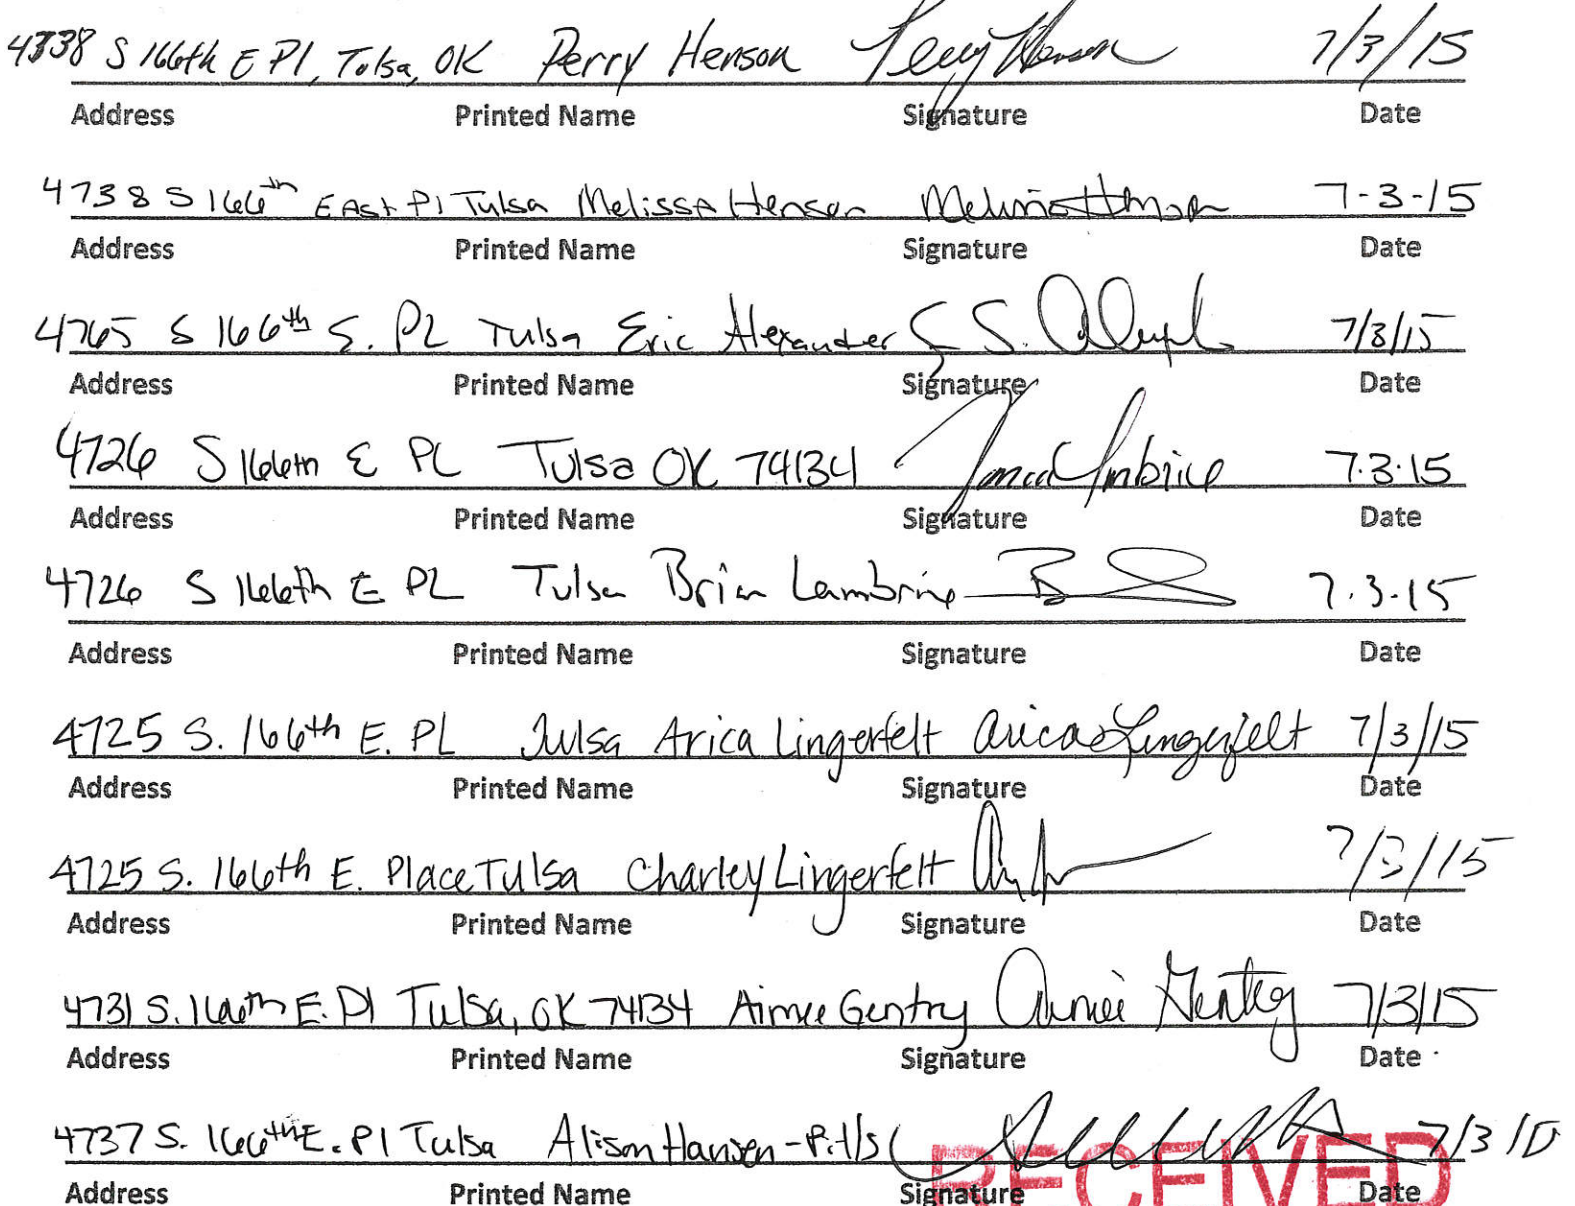 4738 S 166th E Pl, Tulsa, OK Perry Henson Perry Henson 7/3/15
Address Printed Name Signature Date
4738 S 166th East Pl Tulsa Melissa Henson Melissa Henson 7-3-15
Address Printed Name Signature Date
4765 S 166th E. PL Tulsa Eric Alexander 7/3/15
Address Printed Name Signature Date
4726 S 166th E PL Tulsa OK 74134 7.3.15
Address Printed Name Signature Date
4726 S 166th E PL Tulsa Brian Lambrise 7.3.15
Address Printed Name Signature Date
4725 S. 166th E. PL Tulsa Arica Lingerfelt Arica Lingerfelt 7/3/15
Address Printed Name Signature Date
4725 S. 166th E. Place Tulsa Charley Lingerfelt 7/3/15
Address Printed Name Signature Date
4731 S. 166th E. Pl Tulsa, OK 74134 Aimee Gentry Aimee Gentry 7/3/15
Address Printed Name Signature Date
4737 S. 166th E. Pl Tulsa Alison Hansen-Pitts 7/3/15
Address Printed Name Signature Date
RECEIVED